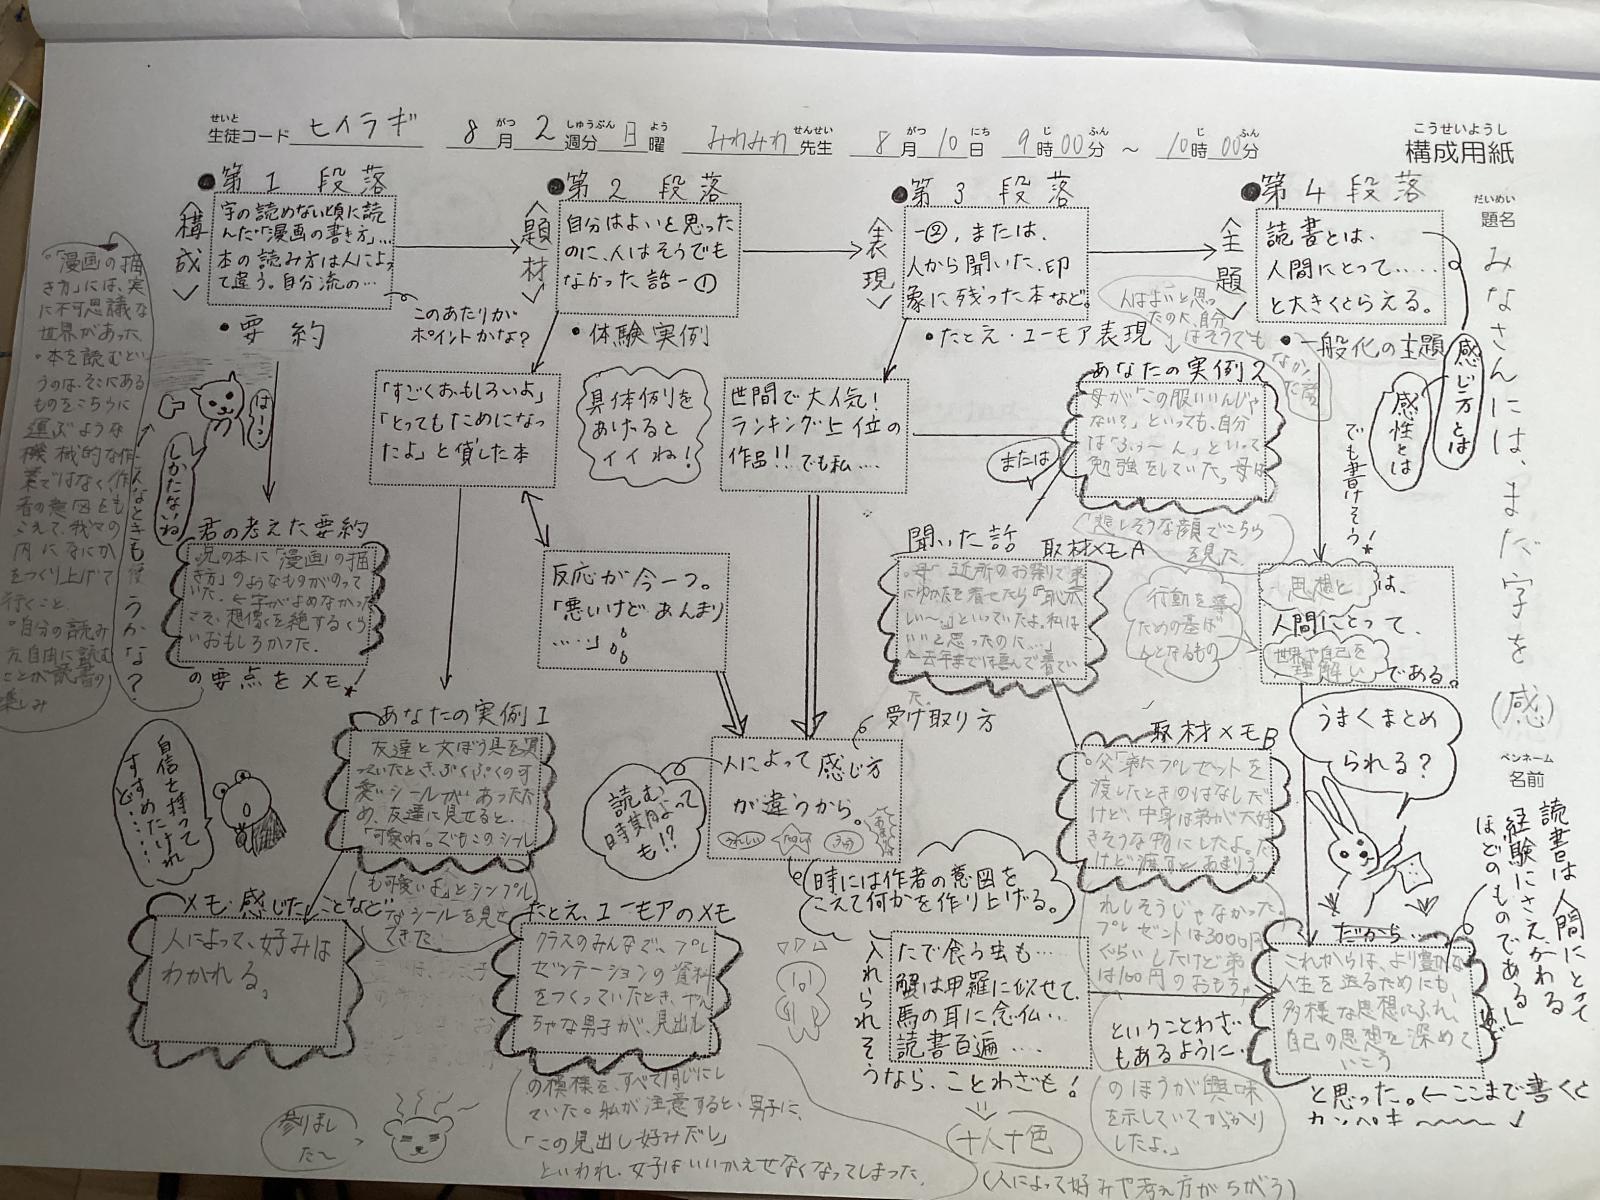 構成用紙
生徒コード ヒイラギ 8月2週分日曜 みわみわ先生 8月10日9時00分〜10時00分
題名
みなさんには、まだ字を (感)
名前
●第1段落
〈構成〉
字の読めない頃に読
んだ「漫画の書き方」…
本の読み方は人によっ
て違う。自分流の…
このあたりがポイントかな?
•要約
はーい
しかたないね
君の考えた要約
兄の本に「漫画の描
き方」のようなものがのって
いた。字がよめなかった
こそ、想像を絶するくら
いおもしろかった。
の要点をメモ
。「漫画の描
き方」には、実
に不可思議な
世界があった
・本を読むとい
うのは、そこにある
ものをこちらに
運ぶような
機械的な作
業ではなく、作
者の意図をも
こえて、我々の
内になにか
をつくり上げて
行くこと。
。自分の読み
方、自由に読む
ことが読書の
楽しみ
自信を持って
すすめたけれ
ど……
●第2段落
〈題材〉
自分はよいと思った
のに、人はそうでも
なかった話ー①
•体験実例
「すごくおもしろいよ」
「とってもためになっ
たよ」と貸した本
具体例を
あげると
イイね!
反応が今一つ。
「悪いけど、あんまり
……」
あなたの実例1
友達と文ぼう具を買
っていたとき、ぷくぷくの可
愛いシールがあったた
め、友達に見せると…
「可愛いね。でもこのシール
も可愛いよ」とシンプル
なシールを見せ
てきた
メモ・感じたことなど
人によって、好みは
わかれる。
●第3段落
〈表現〉
ー②、または、
人から聞いた、印
象に残った本など。
•たとえ・ユーモア表現
世間で大人気!
ランキング上位の
作品!!でも私….
または
人はよいと思っ
たのに、自分
はそうでも
なかった話
あなたの実例2
母が「この服いいんじゃ
ない?」といっても、自分
は「ふぅ〜ん」といって
勉強をしていた。母は
悲しそうな顔でこちら
を見た
聞いた話
取材メモA
取材メモB
受け取り方
人によって感じ方
が違うから。
読む
時期よって
も!?
時には作者の意図を
こえて何かを作り上げる。
たとえ、ユーモアのメモ
クラスのみんなで、プレ
ゼンテーションの資料
をつくっていたとき、やん
ちゃな男子が、見出し
の模様を、すべて同じにし
ていた。私が注意すると、男子に、
「この見出し好みだし」
といわれ、女子はいいかえせなくなってしまった。
参りまし
た〜
たで食う虫も…
蟹は甲羅に似せて、
馬の耳に念仏…
読書百遍….
入れられそ
うなら、ことわざも!
ということわざ
もあるように…
十人十色
(人によって好みや考え方がちがう)
父「弟にプレゼントを
渡したときのはなしだ
けど、中身は弟が大好
きそうな物にしたよ。だ
けど渡すと、あまりう
れしそうじゃなかった。
プレゼントは3000円
ぐらいしたけど弟
は100円のおもちゃ
のほうが興味
を示していてがっかり
したよ。」
●第4段落
〈主題〉
読書とは、
人間にとって……
と大きくとらえる。
•一般化の主題
感じ方とは
感性とは
でも書けそう!
思想とは、
人間にとって、
世界や自己を
理解い
である。
行動を導く
ための基ば
んとなるもの
うまくまとめ
られる?
読書は人間にとって
経験にさえかわる
ほどのものである」
ほど
だから…
これからは、より豊かな
人生を送るためにも、
多様な思想にふれ、
自己の思想を深めて
いこう
と思った。←ここまで書くと
カンペキ〜〜〜✓